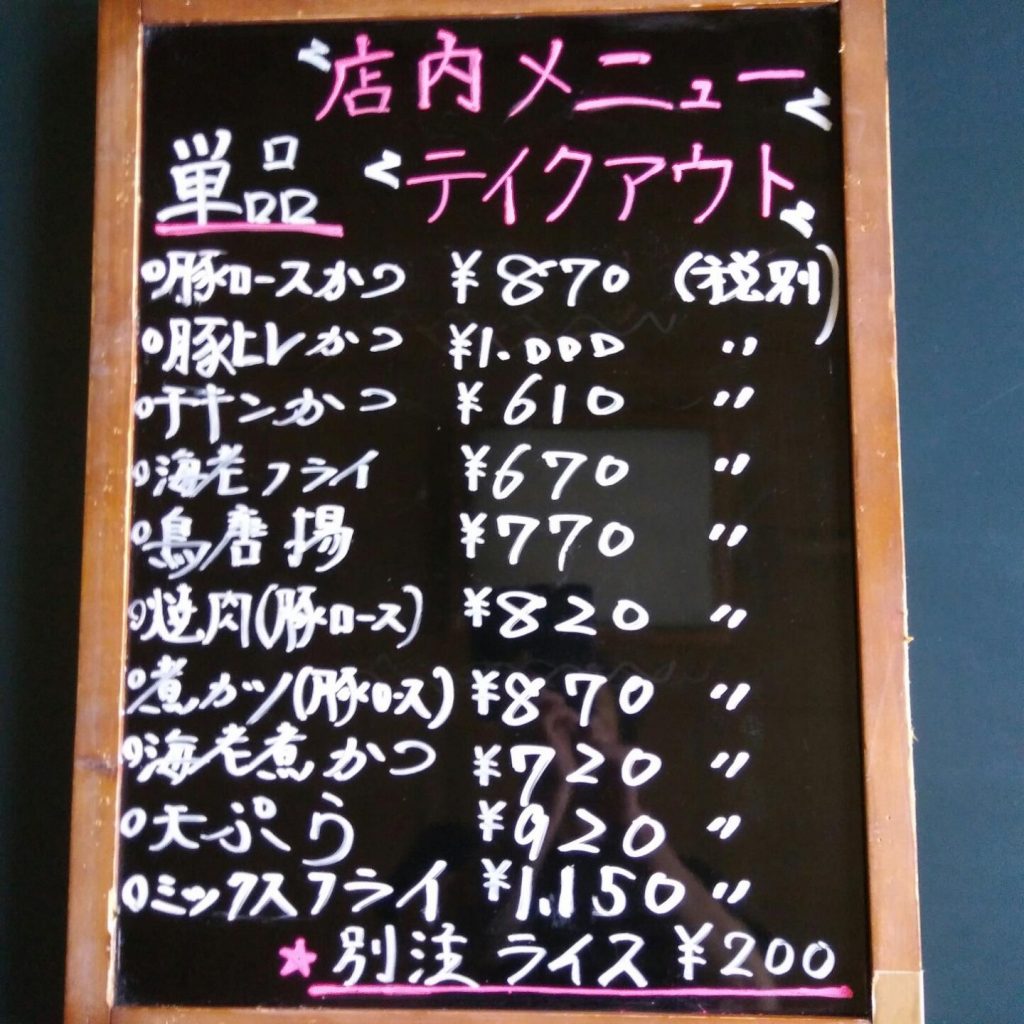 店内メニュー
テイクアウト
単品
○豚ロースかつ ¥870 (税別)
○豚ヒレかつ ¥1.000 〃
○チキンかつ ¥610 〃
○海老フライ ¥670 〃
○鳥唐揚 ¥770 〃
○焼肉(豚ロース) ¥820 〃
○煮カツ(豚ロース) ¥870 〃
○海老煮かつ ¥720 〃
○天ぷら ¥920 〃
○ミックスフライ ¥1.150 〃
★別注 ライス ¥200